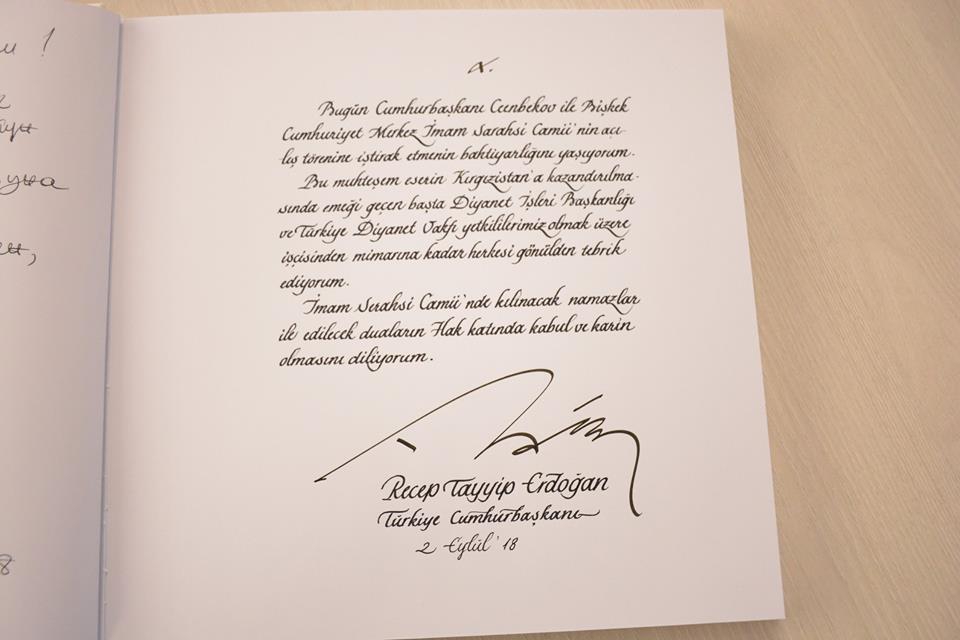 u !
Bugün Cumhurbaşkanı Ceenbekov ile Bişkek
Cumhuriyet Merkez İmam Sarahsi Camii'nin açı-
lış törenine iştirak etmenin bahtiyarlığını yaşıyorum.
Bu muhteşem eserin Kırgızistan'a kazandırılma-
sında emeği geçen başta Diyanet İşleri Başkanlığı
ve Türkiye Diyanet Vakfı yetkililerimiz olmak üzere
işçisinden mimarına kadar herkesi gönülden tebrik
ediyorum.
İmam Serahsi Camii'nde kılınacak namazlar
ile edilecek duaların Hak katında kabul ve karin
olmasını diliyorum.
Recep Tayyip Erdoğan
Türkiye Cumhurbaşkanı
2 Eylül '18
8